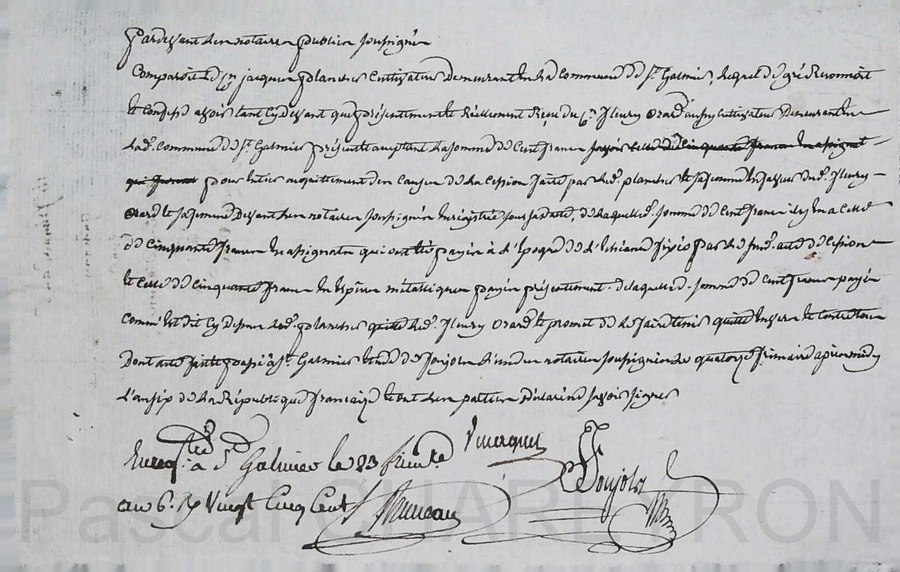 Pardevant les notaires publics soussignés
Comparoit le Cn jacques planches Cultivateur demeurant en la Commune de St. Galmier, lequel de gré Reconnoit
et Confesse avoir tant Cy devant que présentement et Réellement Reçu du Cn. fleury orard aussy Cultivateur demeurant en
lad. Commune de St. Galmier présent acceptant la somme de Cent francs savoir celle de Cinquante francs en assignat
qui furent pour entier acquittement des Causes de la Cession faite par led. planches et sa femme en faveur dud. fleury
orard et sa femme devant les notaires soussignés enregistrée sous sa datte, de laquelle d. somme de Cent francs il y en a celle
de Cinquante francs en assignats qui ont été payés à l'époque de l'échéance fixée par le sud. acte de Cession
et celle de Cinquante francs en Espèces métalliques payés présentement. de laquelle d. somme de Cent francs payée
Comm'est dit Cy dessus led. planches quitte led. fleury orard et promet de le faire tenir quitte envers et contre tous
Dont acte fait et passé à St. Galmier Etude de Soujols l'un des notaires soussignés le quatorze frimaire après midy
L'an six de la République françaize et ont les parties déclaré ne savoir signer
Enregtré à St Galmier le 23 frimre
an 6. R Vingt Cinq Cent
Soujols
Pascal CHAREYRON